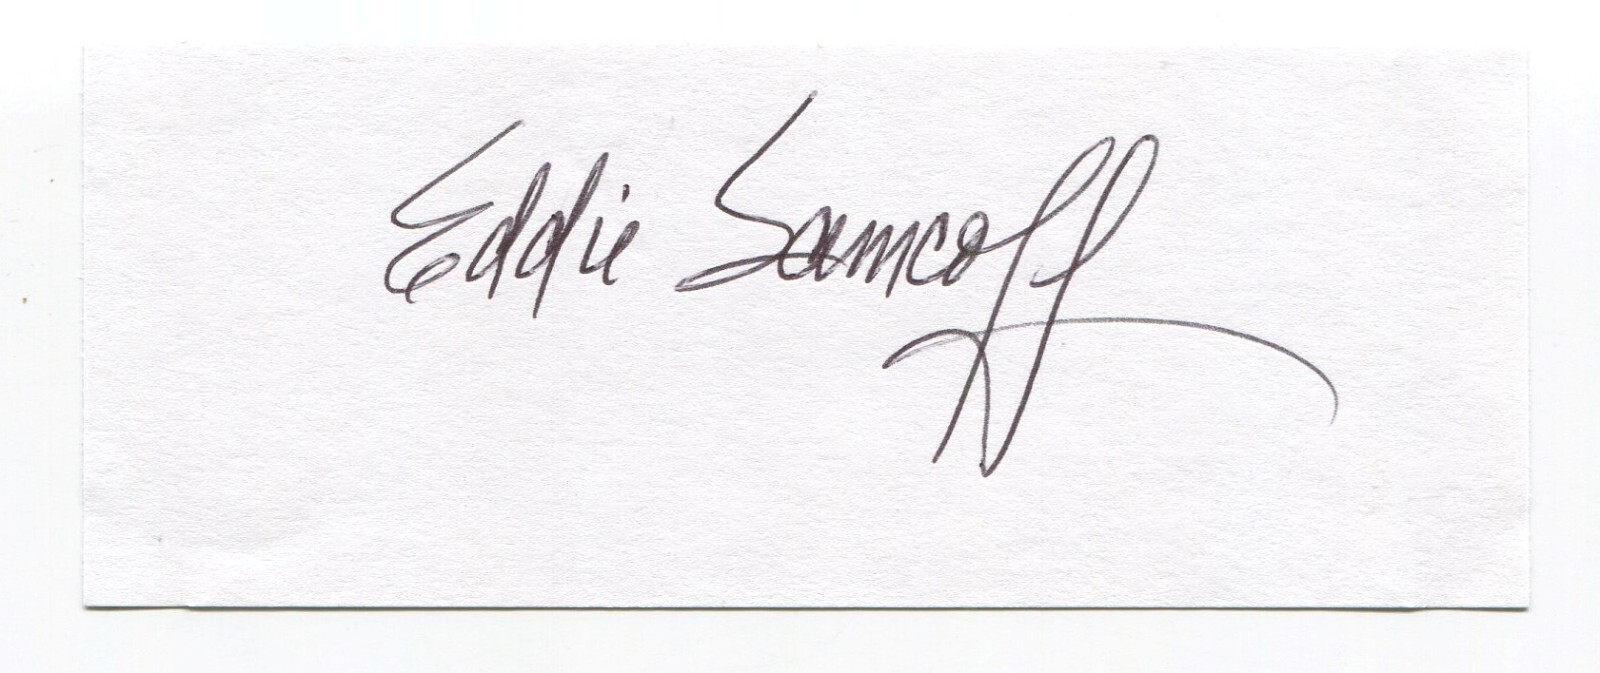 Eddie Samcoff